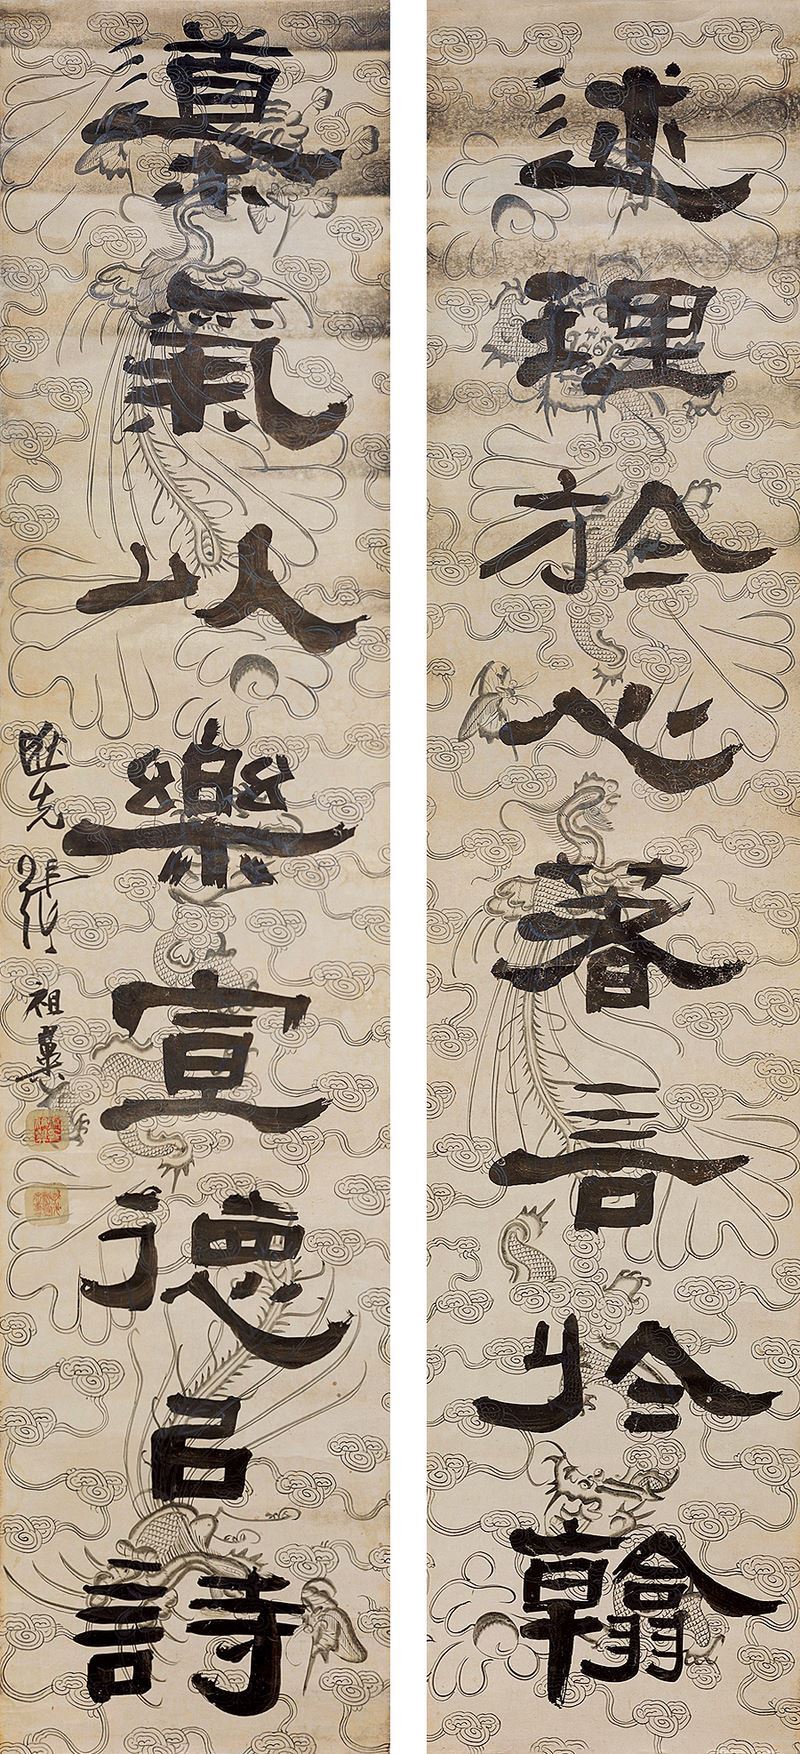 述理於心著言於翰
導氣以樂宣德㠯詩
逖先張祖翼